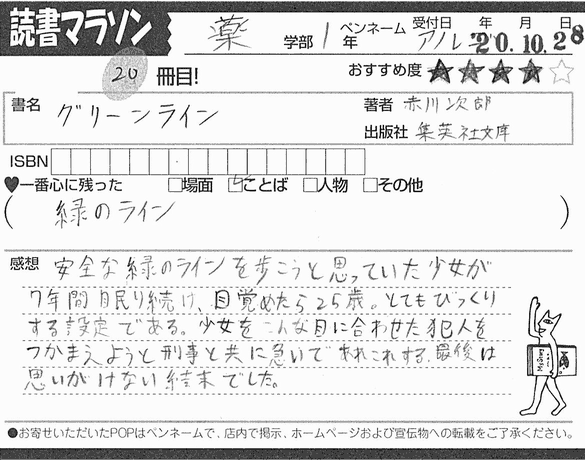 読書マラソン
薬 学部 1 年 ペンネーム アル 受付日 年 月 日
20.10.28
20 冊目!
おすすめ度 ★★★★☆
書名 グリーンライン
著者 赤川次郎
出版社 集英社文庫
ISBN
♥一番心に残った □場面 ☑ことば □人物 □その他
( 緑のライン )
感想 安全な緑のラインを歩こうと思っていた少女が
7年間眠り続け、目覚めたら25歳。とてもびっくり
する設定である。少女をこんな目に合わせた犯人を
つかまえようと刑事と共に急いであれこれする。最後は
思いがけない結末でした。
●お寄せいただいたPOPはペンネームで、店内で掲示、ホームページおよび宣伝物への転載をご了承ください。